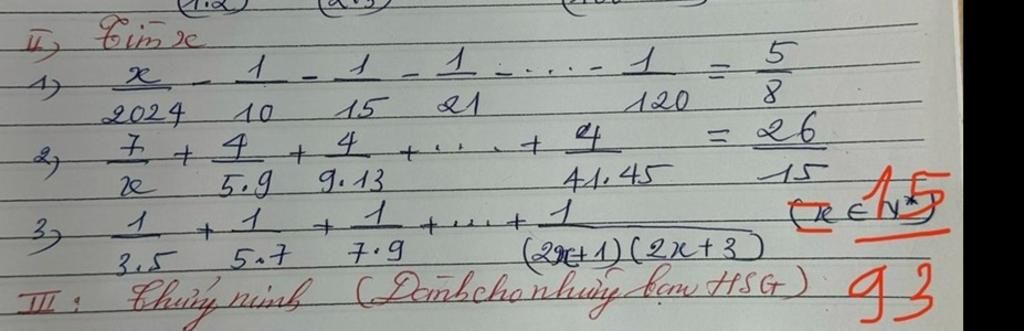 II, Tìm x
1) x/2024 - 1/10 - 1/15 - 1/21 - .... - 1/120 = 5/8
2) 7/x + 4/5.9 + 4/9.13 + .... + 4/41.45 = 26/15
3) 1/3.5 + 1/5.7 + 1/7.9 + ... + 1/(2x+1)(2x+3) = 15/93 (x ∈ N*)
III: Chứng minh (Dành cho những bạn HSG)